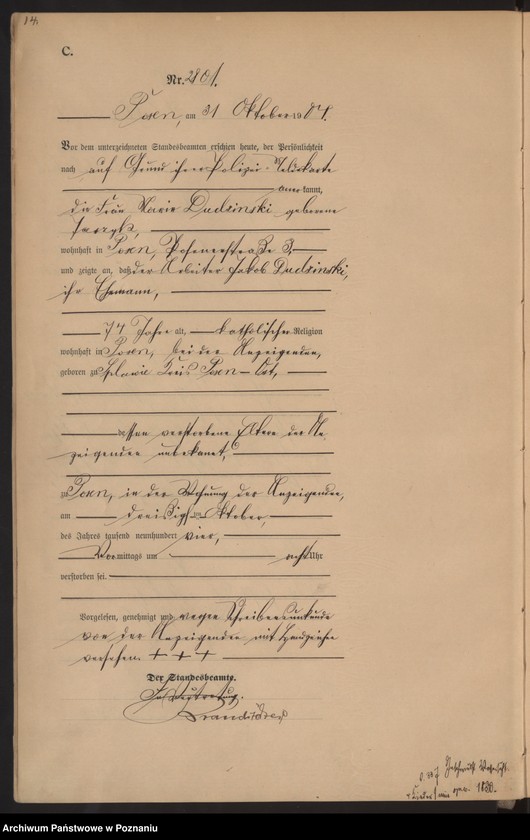 14.
C.
Nr. 2101.
Posen, am 31 Oktober 1904.
Vor dem unterzeichneten Standesbeamten erschien heute, der Persönlichkeit
nach auf Grund ihrer Polizei-Meldekarte
anerkannt,
die Frau Maria Dudzinski geborene
wohnhaft in Posen, Posenerstraße 3,
und zeigte an, daß der Arbeiter Jakob Dudzinski,
ihr Ehemann,
74 Jahre alt, katholischer Religion
wohnhaft in Posen, bei der Anzeigenden,
geboren zu Kreis Posen-Ost,
dessen verstorbene Eltern der An-
zeigenden unbekannt,
zu Posen, in der Wohnung der Anzeigenden,
am dreißigsten Oktober,
des Jahres tausend neunhundert vier,
Vormittags um acht Uhr
verstorben sei.
Vorgelesen, genehmigt und wegen Schreibensunkunde
von der Anzeigenden mit Handzeichen
versehen. + + +
Der Standesbeamte.
In Vertretung.
Archiwum Państwowe w Poznaniu